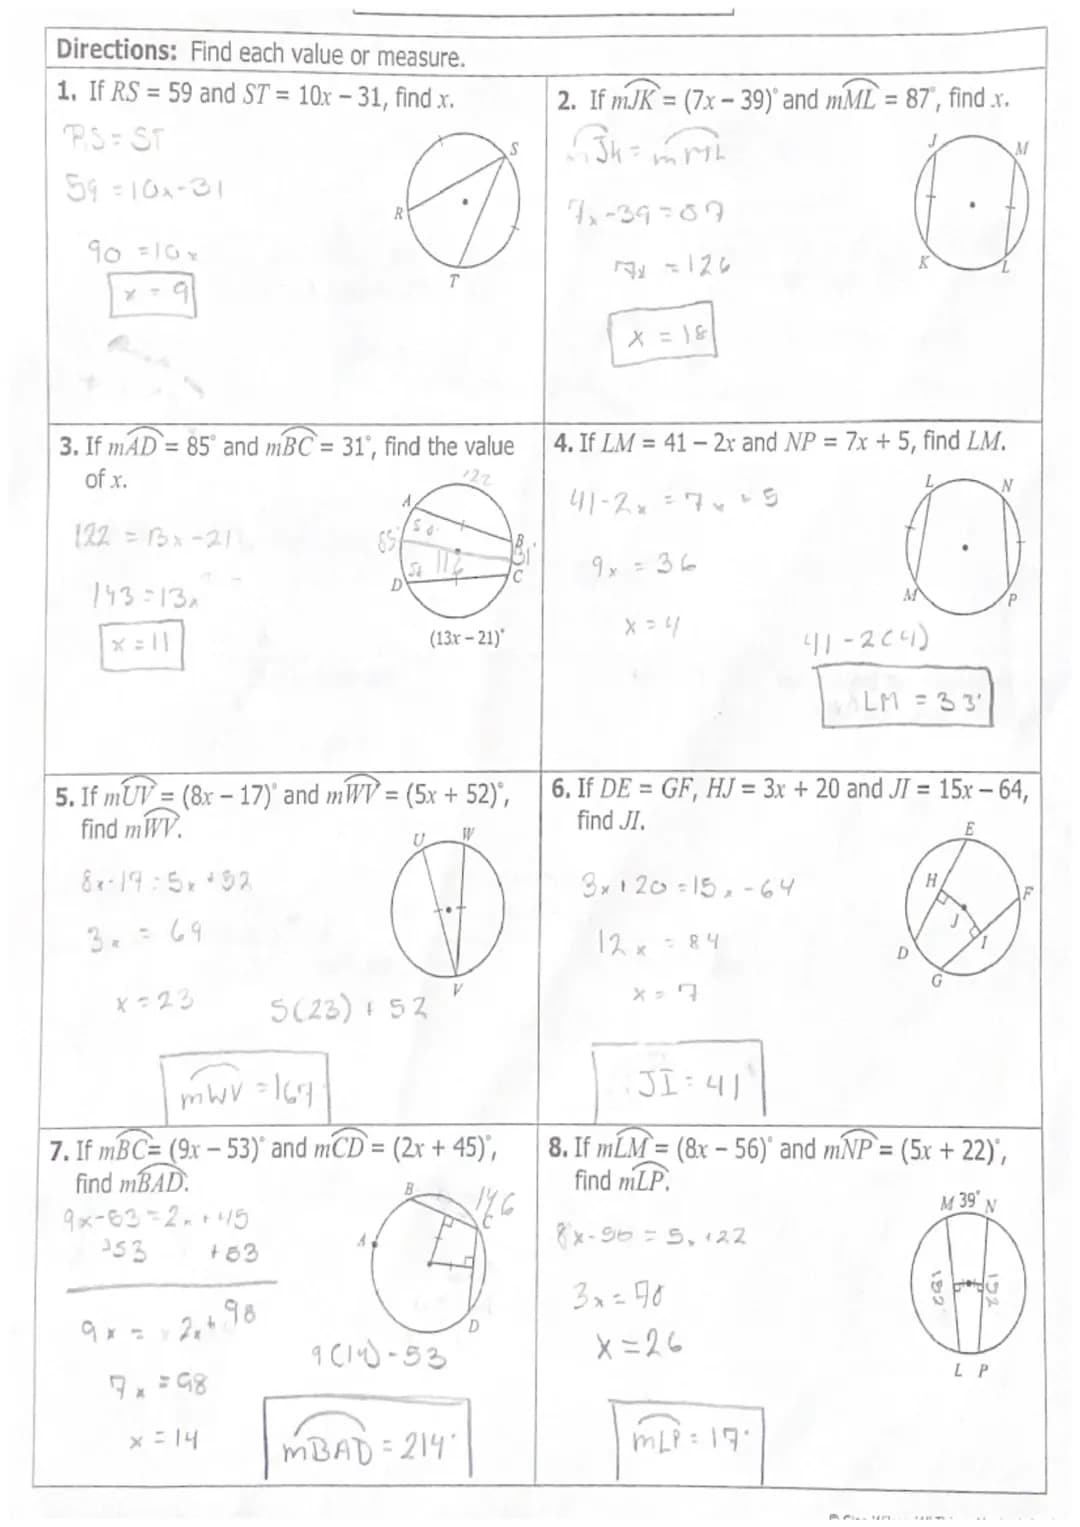 Directions: Find each value or measure.
1. If RS = 59 and ST = 10x – 31, find x.
RS = ST
59 = 10x - 31
90 = 10x
x = 9
S
R
T
2. If mJK = (7x – 39)° and mML = 87°, find x.
mJK = mML
7x - 39 = 87
7x = 126
x = 18
J
M
K
L
3. If mAD = 85° and mBC = 31°, find the value
of x.
122 = 13x - 21
143 = 13x
x = 11
122
A
85
B
31°
116
D
C
(13x – 21)°
4. If LM = 41 – 2x and NP = 7x + 5, find LM.
41 - 2x = 7x + 5
9x = 36
x = 4
41 - 2(4)
LM = 33
L
N
M
P
5. If mUV = (8x – 17)° and mWV = (5x + 52)°,
find mWV.
8x - 17 = 5x + 52
3x = 69
x = 23
5(23) + 52
mWV = 167
U
W
V
6. If DE = GF, HJ = 3x + 20 and JI = 15x – 64,
find JI.
3x + 20 = 15x - 64
12x = 84
x = 7
JI = 41
E
H
F
J
I
D
G
7. If mBC= (9x – 53)° and mCD = (2x + 45)°,
find mBAD.
9x - 53 = 2x + 45
+53 +53
9x = 2x + 98
7x = 98
x = 14
9(14) - 53
mBAD = 214°
B
146
C
A
D
8. If mLM = (8x – 56)° and mNP = (5x + 22)°,
find mLP.
8x - 56 = 5x + 22
3x = 78
x = 26
mLP = 17°
M 39° N
152
152
L P